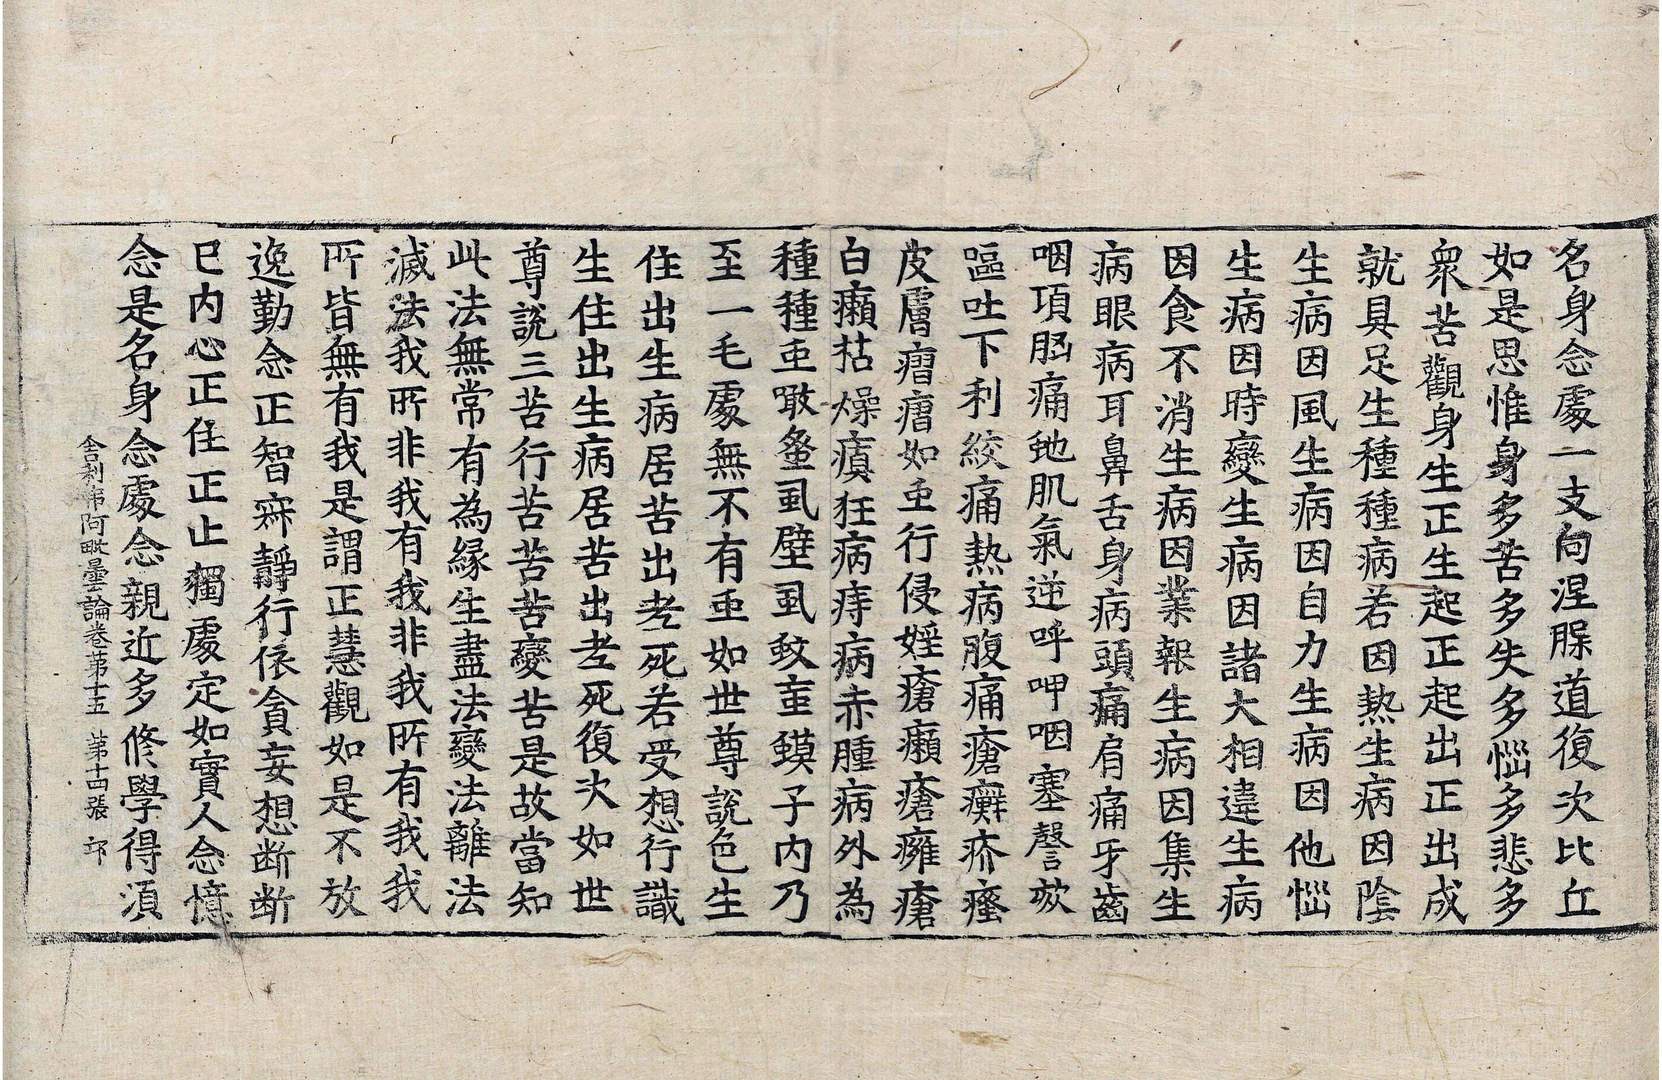 名身念處一支向涅脲道復次比丘
如是思惟身多苦多失多惱多悲多
衆苦觀身生正生起正起出正出成
就具足生種種病若因熱生病因陰
生病因風生病因自力生病因他惱
生病因時變生病因諸大相違生病
因食不消生病因業報生病因集生
病眼病耳鼻舌身病頭痛肩痛牙齒
咽項胭痛虵肌氣逆呼呷咽塞謦欬
嘔吐下利絞痛熱病腹痛瘡癬疥瘙
皮膚瘤瘡如虫行侵婬瘡癩瘡癰瘡
白癩枯燥瘨狂病痔病赤腫病外為
種種虫噉螽虱壁虱蚊䖝蟆子內乃
至一毛處無不有虫如世尊說色生
住出生病居苦出老死若受想行識
生住出生病居苦出老死復次如世
尊說三苦行苦苦苦變苦是故當知
此法無常有為緣生盡法變法離法
滅法我所非我有我非我所有我我
所皆無有我是謂正慧觀如是不放
逸勤念正智寂靜行依貪妄想断断
已內心正住正止獨處定如實人念憶
念是名身念處念親近多修學得須
舍利弗阿毗曇論卷第十五 第十四張 邙